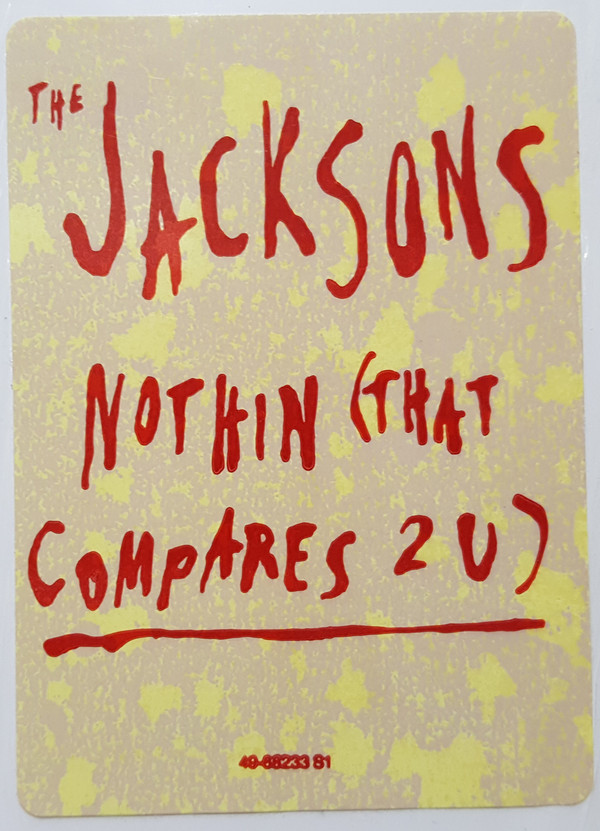 THE JACKSONS
NOTHIN (THAT
COMPARES 2 U)
49-68233 S1